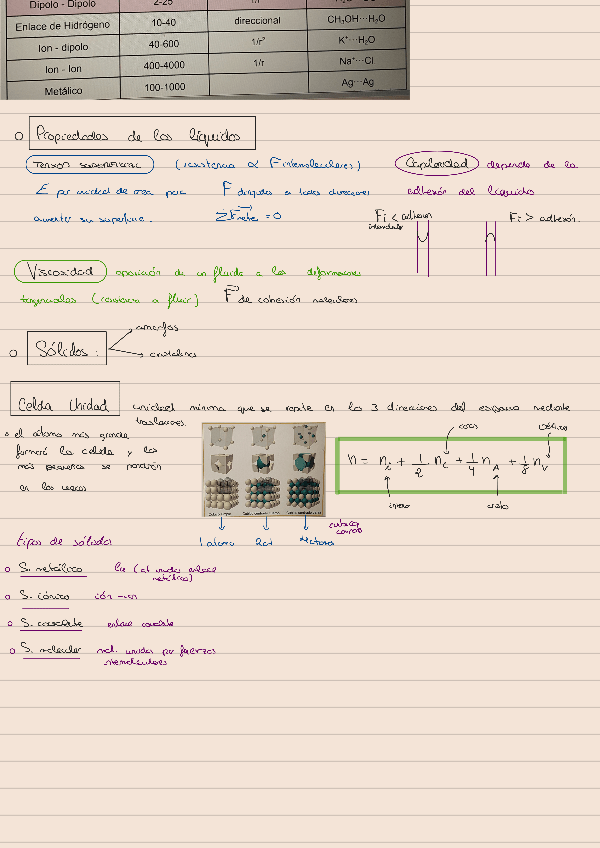 Dipolo - Dipolo 2-25
Enlace de Hidrógeno 10-40 direccional CH₃OH···H₂O
Ion - dipolo 40-600 1/r² K⁺···H₂O
Ion - Ion 400-4000 1/r Na⁺···Cl
Metálico 100-1000 Ag···Ag
Propiedades de los líquidos
Tension superficial (resistencia α F intermoleculares) Capilaridad depende de la
E por unidad de area para F dirigidas a todas direcciones adhesión del líquido
aumentar su superficie. ΣF neta = 0 Fi < adhesion Fi > adhesión.
Viscosidad oposición de un fluido a las deformaciones
tangenciales (resistencia a fluir) F de cohesión moleculares
Sólidos:
amorfos
cristalinos
Celda Unidad unidad mínima que se repite en las 3 direcciones del espacio mediante
traslaciones
el átomo más grande
formará la celda y los
más pequeños se pondrán
en los huecos
caras vértices
n = ni + 1/2 nc + 1/4 nA + 1/8 nv
arista
1 atomo 2at 4 atomos
tipos de sólidos
S. metálico (at unidos enlace
metálico)
S. iónico ión - ión
S. covalente enlace covalente
S. molecular mol. unidas por fuerzas
intermoleculares